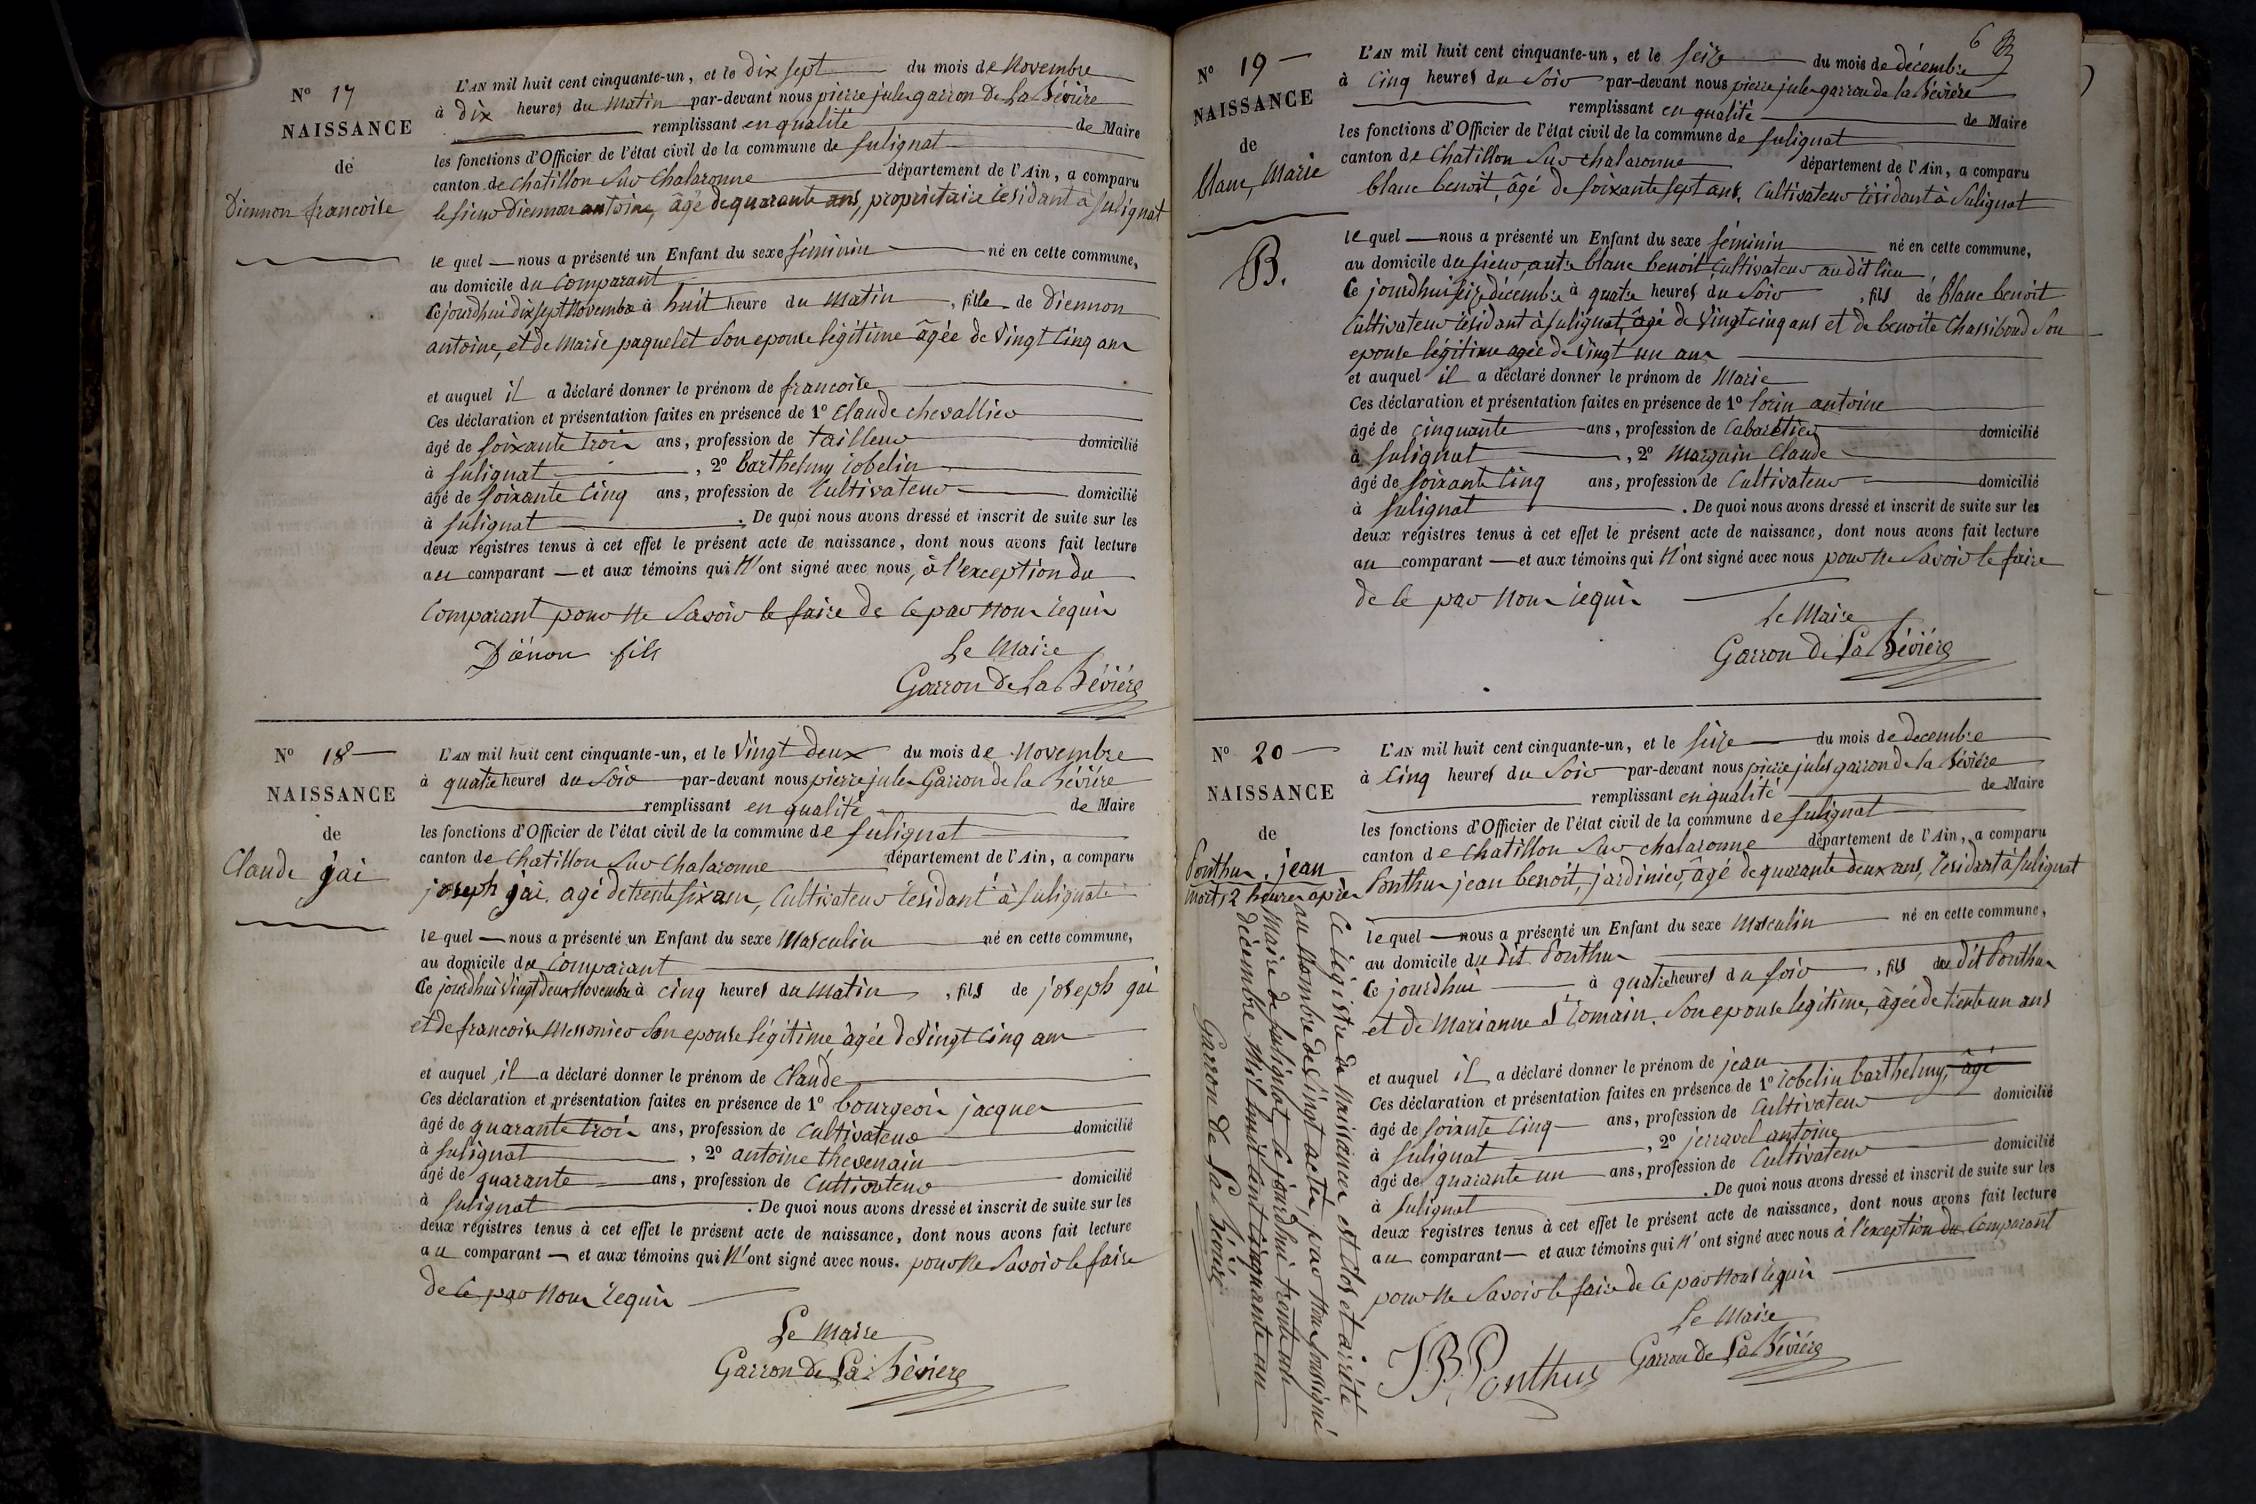 N° 17
NAISSANCE
de
Diennon francoise
L'AN mil huit cent cinquante-un, et le dix sept du mois de Novembre
à dix heures du Matin par-devant nous pierre jules garron de La Bévière
remplissant en qualité de Maire
les fonctions d'Officier de l'état civil de la commune de Sulignat
canton de Chatillon Sur Chalaronne département de l'Ain, a comparu
le sieur Diennon antoine, âgé de quarante ans, propriétaire résidant à Sulignat
le quel nous a présenté un Enfant du sexe féminin né en cette commune,
au domicile du Comparant
Ce jourdhui dix sept Novembre à huit heure du Matin, fille de Diennon
antoine, et de Marie paquelet Son epouse légitime âgée de Vingt Cinq ans
et auquel il a déclaré donner le prénom de francoise
Ces déclaration et présentation faites en présence de 1° Claude chevallier
âgé de Soixante trois ans, profession de tailleur domicilié
à Sulignat, 2° barthelmy robelin
âgé de Soixante Cinq ans, profession de Cultivateur domicilié
à Sulignat. De quoi nous avons dressé et inscrit de suite sur les
deux registres tenus à cet effet le présent acte de naissance, dont nous avons fait lecture
au comparant et aux témoins qui N'ont signé avec nous, à l'exception du
Comparant pour Ne Savoir le faire de Ce par Nous requis
Diënon fils
Le Maire
Garron de La Bévière
N° 18
NAISSANCE
de
Claude gai
L'AN mil huit cent cinquante-un, et le Vingt deux du mois de Novembre
à quatre heures du Soir par-devant nous pierre jules Garron de la Bévière
remplissant en qualité de Maire
les fonctions d'Officier de l'état civil de la commune de Sulignat
canton de Chatillon Sur Chalaronne département de l'Ain, a comparu
joseph gai, agé de trente six ans, Cultivateur résidant à Sulignat
le quel nous a présenté un Enfant du sexe Masculin né en cette commune,
au domicile du Comparant
Ce jourdhui Vingt deux Novembre à Cinq heures du Matin, fils de joseph gai
et de francoise Messonier Son epouse légitime âgée de Vingt Cinq ans
et auquel il a déclaré donner le prénom de Claude
Ces déclaration et présentation faites en présence de 1° bourgeois jacques
âgé de quarante trois ans, profession de Cultivateur domicilié
à Sulignat, 2° antoine thevenain
âgé de quarante ans, profession de Cultivateur domicilié
à Sulignat. De quoi nous avons dressé et inscrit de suite sur les
deux registres tenus à cet effet le présent acte de naissance, dont nous avons fait lecture
au comparant et aux témoins qui N'ont signé avec nous. pour Ne Savoir le faire
de Ce par Nous requis
Le Maire
Garron de La Bévière
6
N° 19
NAISSANCE
de
blanc, Marie
B.
L'AN mil huit cent cinquante-un, et le seize du mois de décembre
à Cinq heures du Soir par-devant nous pierre jules garron de la Bévière
remplissant en qualité de Maire
les fonctions d'Officier de l'état civil de la commune de Sulignat
canton de Chatillon Sur chalaronne département de l'Ain, a comparu
blanc benoit, âgé de Soixante Sept ans, Cultivateur résidant à Sulignat
le quel nous a présenté un Enfant du sexe féminin né en cette commune,
au domicile du sieur autre blanc benoit Cultivateur au dit lieu
Ce jourdhui seize décembre à quatre heures du Soir, fils de blanc benoit
Cultivateur résidant à Sulignat, âgé de Vingt cinq ans et de benoite Chassiboud Son
epouse légitime agée de Vingt un ans
et auquel il a déclaré donner le prénom de Marie
Ces déclaration et présentation faites en présence de 1° lorin antoine
âgé de cinquante ans, profession de Cabaretier domicilié
à Sulignat, 2° Marguin Claude
âgé de Soixante Cinq ans, profession de Cultivateur domicilié
à Sulignat. De quoi nous avons dressé et inscrit de suite sur les
deux registres tenus à cet effet le présent acte de naissance, dont nous avons fait lecture
au comparant et aux témoins qui N'ont signé avec nous pour Ne Savoir le faire
de Ce par Nous requis
Le Maire
Garron de La Bévière
N° 20
NAISSANCE
de
Ponthus, jean
Mort, 2 heures après
L'AN mil huit cent cinquante-un, et le seize du mois de decembre
à Cinq heures du Soir par-devant nous pierre jules garron de la Bévière
remplissant en qualité de Maire
les fonctions d'Officier de l'état civil de la commune de Sulignat
canton de Chatillon Sur chalaronne département de l'Ain, a comparu
Ponthus jean benoit, jardinier, âgé de quarante deux ans, résidant à Sulignat
le quel nous a présenté un Enfant du sexe Masculin né en cette commune,
au domicile du dit Ponthus
Ce jourdhui à quatre heures du Soir, fils du dit Ponthus
et de Marianne St romain. Son epouse légitime, âgée de trente un ans
et auquel il a déclaré donner le prénom de jean
Ces déclaration et présentation faites en présence de 1° robelin barthelmy, âgé
âgé de soixante Cinq ans, profession de Cultivateur domicilié
à Sulignat, 2° jerravel antoine
âgé de quarante un ans, profession de Cultivateur domicilié
à Sulignat. De quoi nous avons dressé et inscrit de suite sur les
deux registres tenus à cet effet le présent acte de naissance, dont nous avons fait lecture
au comparant et aux témoins qui N'ont signé avec nous à l'exception du Comparant
pour Ne Savoir le faire de Ce par Nous requis
Le Maire
Garron de La Bévière
J B Ponthus
Ce registre de Naissances est Clos et arrêté
au Nombre de Vingt actes, par Nous soussigné
Maire de Sulignat Ce jourdhui trente un
décembre Mil huit Cent Cinquante un
Garron de La Bévière